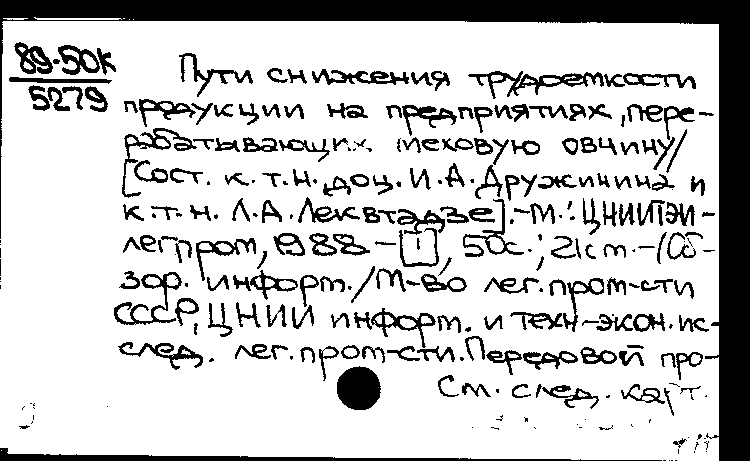 89-50К
5279
Пути снижения трудоемкости
продукции на предприятиях, пере-
рабатывающих меховую овчину/
[Сост. к.т.н. доц. И.А. Дружинина и
к.т.н. Л.А. Леквтадзе]. - М.: ЦНИИТЭИ-
легпром, 1988 - [1], 50с.; 21см. - (Об-
зор. информ. / М-во лег. пром-сти
СССР, ЦНИИ информ. и техн-экон. ис-
след. лег. пром-сти. Передовой про-
См. след. карт.